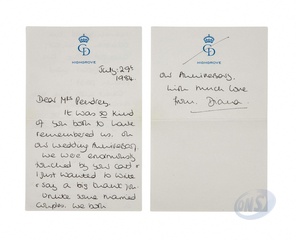 CD
HIGHGROVE
July. 29th
1984.
Dear Mrs Pendrey,
It was so kind
of you both to have
remembered us on
our wedding Anniversary.
We were enormously
touched by your card &
I just wanted to write
& say a big thank you.
Unlike some married
couples we both
CD
HIGHGROVE
our Anniversary.
With much love
from, Diana